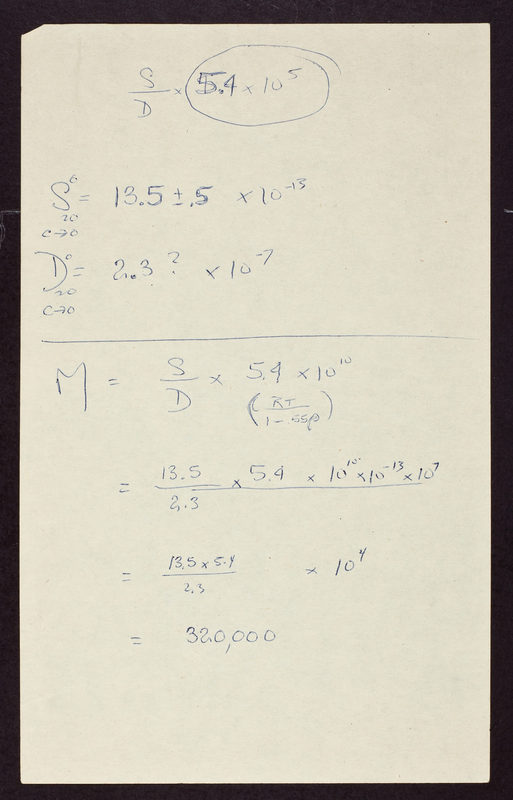 S/D × 5.4 × 10^5
S^0_20 = 13.5 ± .5 × 10^-13
c→0
D^0_20 = 2.3 ? × 10^-7
c→0
M = S/D × 5.4 × 10^10
(RT / 1 - .55ρ)
= 13.5/2.3 × 5.4 × 10^10 × 10^-13 × 10^7
= 13.5 × 5.4 / 2.3 × 10^4
= 320,000